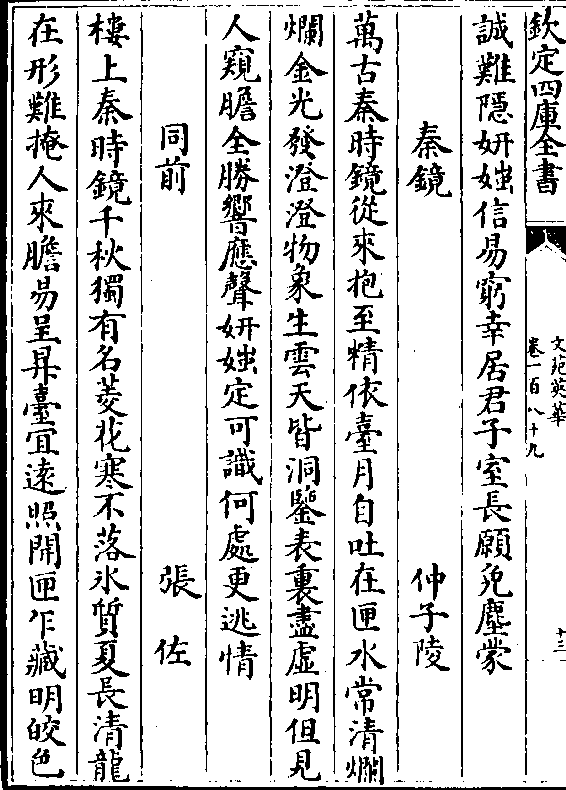 欽定四庫全書
文苑英華
卷一百八十九
十三
誠難隱妍媸信易窮幸居君子室長願免塵蒙
秦鏡 仲子陵
萬古秦時鏡從來抱至精依臺月自吐在匣水常清爛
爛金光發澄澄物象生雲天皆洞鑒表裏盡虛明但見
人窺膽全勝響應聲妍媸定可識何處更逃情
同前 張佐
樓上秦時鏡千秋獨有名菱花寒不落氷質夏長清龍
在形難掩人來膽易呈昇臺宜遠照開匣乍藏明皎色